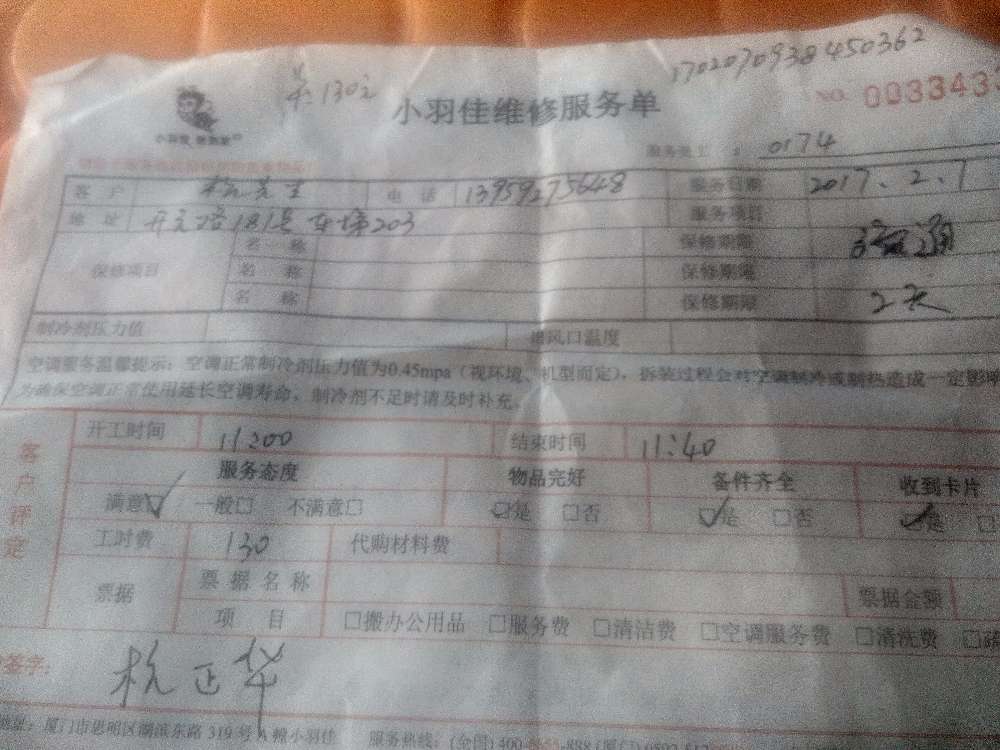 关130元
1702070938450362
小羽佳维修服务单
NO. 0033343
小羽佳 做到家
服务员工 : 0174
客户 杭先生 电话 13959275648 服务日期 2017.2.7
地址 开元路181号 203 服务项目 疏通
保修项目 名称 保修期限
名称 保修期限
名称 保修期限 2天
制冷剂压力值 出风口温度
空调服务温馨提示:空调正常制冷剂压力值为0.45mpa(视环境、机型而定),拆装过程会对空调制冷或制热造成一定影响
为确保空调正常使用延长空调寿命,制冷剂不足时请及时补充。
客户评定
开工时间 11:00 结束时间 11:40
服务态度 物品完好 备件齐全 收到卡片
满意☑ 一般□ 不满意□ ☑是 □否 ☑是 □否 ☑是 □
工时费 130 代购材料费
票据 票据名称 票据金额
项目 □搬办公用品 □服务费 □清洁费 □空调服务费 □清洗费 □
签字: 杭正华
地址:厦门市思明区湖滨东路319号A幢小羽佳 服务热线:(全国)400-8655-888(厦门)0592-512